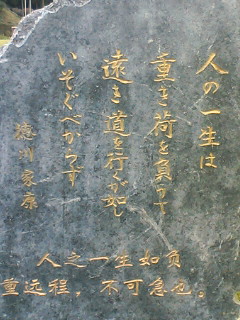 人の一生は
重き荷を負うて
遠き道を行くが如し
いそぐべからず
徳川家康
人之一生如负
重远程，不可急也。